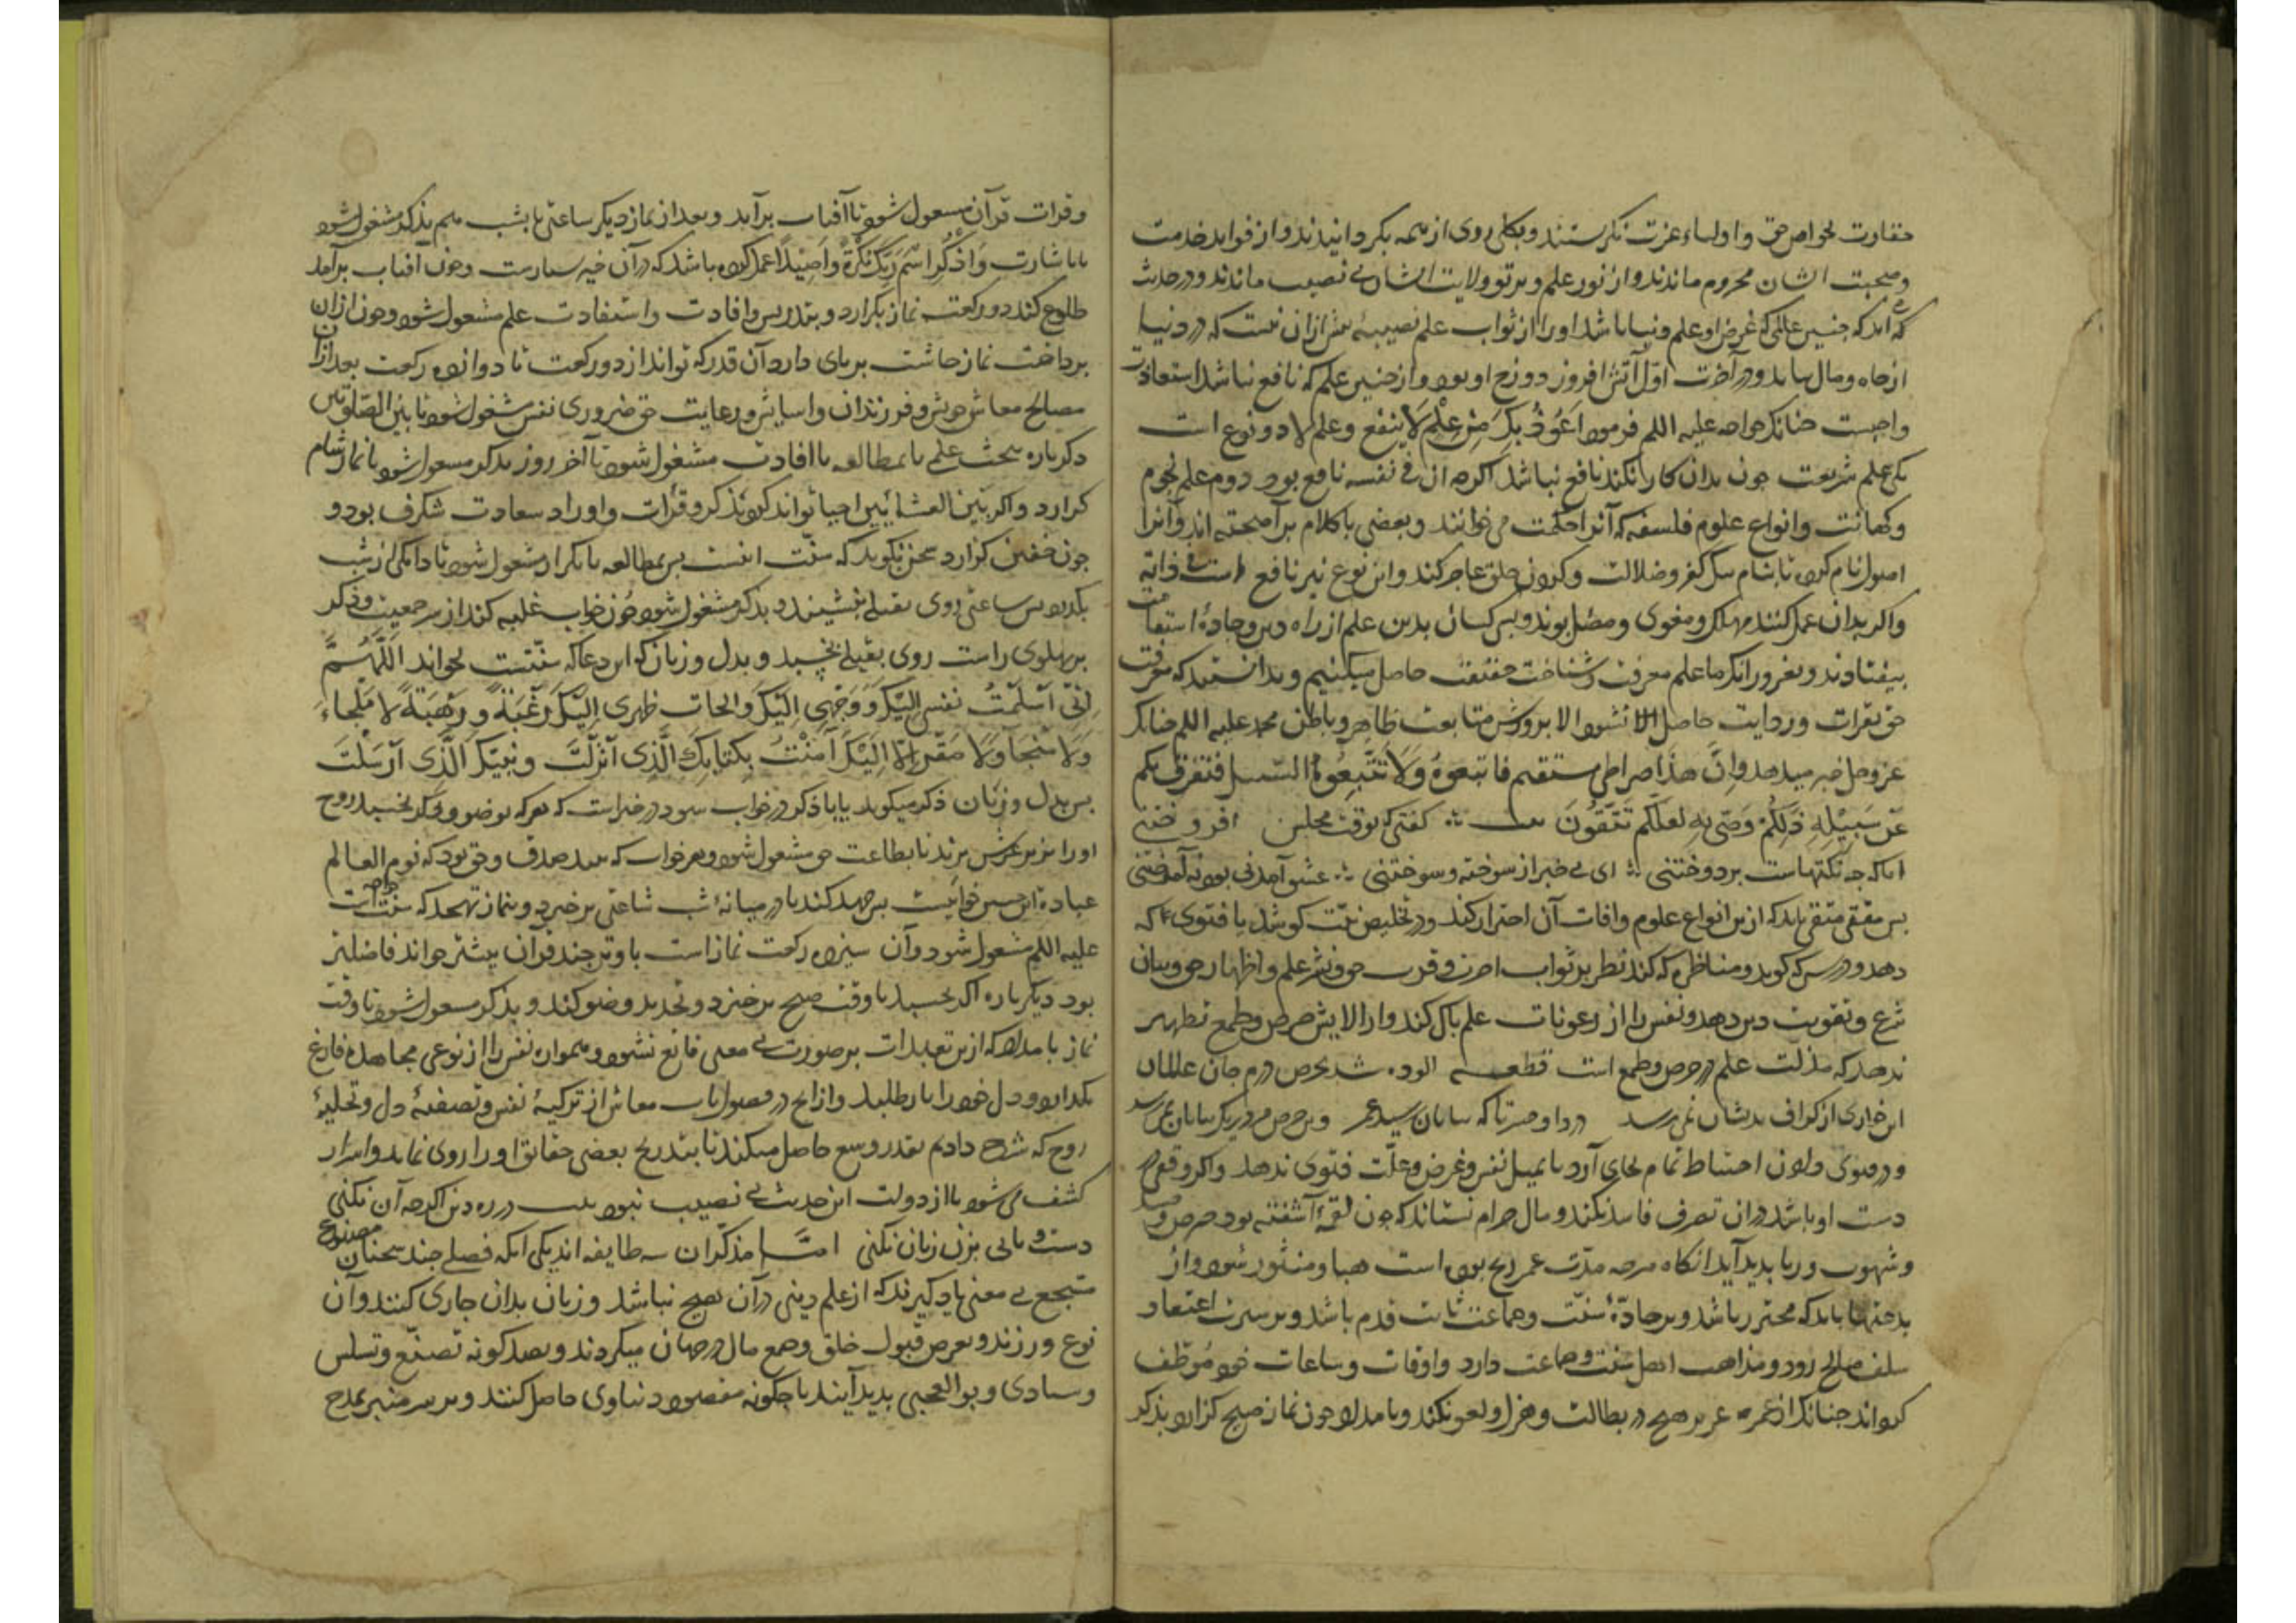 حقارت بخواص حق و اولیاء عزت نگرستند و بکلی روی از همه بگردانیدند و از فواید خدمت
و صحبت ایشان محروم ماندند و از نور علم و پرتو ولایت ایشان بی نصیب ماندند و در حدیث
که جنین عالمی که غرض او علم دنیا باشد او را از ثواب علم نصیبه بیش ازان نیست که در دنیا
از جاه و مال بیابد و در آخرت اول آتش افروز دوزخ او بود و از جنین علم که نافع نباشد استعاذت
واجبست جنانکه خواجه علیه السلم فرمود اَعُوذُ بِکَ مِنْ عِلْمٍ لَا یَنْفَع و علم لا دو نوع است
یکی علم شریعت جون بدان کار نکند نافع نباشد اکرجه آن فی نفسه نافع بود دوم علم نجوم
و کهانت و انواع علوم فلسفه که آنرا حکمت می خوانند و بعضی با کلام برآمیخته اند و آنرا
اصول نام کرده تا بنام نیک کفر و ضلالت در کردن خلق عاجز کنند و این نوع نیز نافع است فی ذاته
و اکر بدان عمل کنند مهلک و مغوی و مضل بود و بس کسان بدین علم از راه دین و جادهٔ استقامت
بیفتادند و بغرور آنکه ما علم معرفت و شناخت حقیقت حاصل میکنیم و ندانستند که معرفت
حق بقرات و روایت حاصل نشود الا بروش متابعت ظاهر و باطن محمد علیه السلم جنانکه
عز و جل خبر میدهد وَاِنَّ هذَا صِراطی مستقیم فاتبعوهُ وَلَا تَتَّبِعُوا السّبل فتفرق بکم
عَن سَبِیْلِهِ ذَلِکُمْ وَصّی بِهِ لعَلّکم تَتَّقُونَ بیت ∴ کفتی که بوقت مجلس افروختنی
ایا که جه نکتهاست بردوختنی ∴ ای بی خبر از سوخته و سوختنی ∴ عشق آمدنی بود نه آموختنی
بس مفتی متقی باید که ازین انواع علوم و آفات آن احتراز کند و در تخلیص نیت کوشد با فتوی که
دهد و درس که کوید و مناظره که کند نظر بر ثواب آخرت و قربت حق و نشر علم و اظهار حق و بیان
شرع و تقویت دین دهد و نفس را از رعونات علم باک کند و از آلایش حرص و طمع تطهیر
دهد که مذلت علم در حرص و طمع است قطعه آلوده شد بحرص درم جان عالمان
این خواری از کزاف بدیشان نمی رسد دردا و حسرتا که ببایان رسید عمر وین حرص مرده ریک ببایان نمی رسد
و در فتوی دادن احتیاط تمام بجای آرد تا بمیل نفس و غرض و علت فتوی ندهد و اکر وقفی در
دست او باشد دران تصرف فاسد نکند و مال حرام نستاند که جون لقمه آشفته بود حرص و حسد
و شهوت و ریا بدید آید آنکاه هرجه مدّت عمر رنج برده است هبا و منثور شود و از
بدعتها باید که محترز باشد و بر جادّهٔ سنّت و جماعت ثابت قدم باشد و بر سیرت اعتقاد
سلف صالح رود و مذاهب اهل سنت و جماعت دارد و اوقات و ساعات خود مُوظّف
کرداند جنانکه از عمر عزیز هیچ در بطالت و هزل و لغو نکند و بامداد جون نماز صبح کزارد بذکر
و قرات قرآن مشغول شود تا آفتاب برآید و بعد از نماز دیکر ساعتی تا بشب هم بذکر مشغول شود
تا باشارت وَاذْکُرِ اسْمَ رَبِّکَ بُکْرَةً وَاَصِیْلاً عمل کرده باشد که در آن خیر بسیارست و جون آفتاب برآمد
طلوع کند دو رکعت نماز بکزارد و بتدریس و افادت و استفادت علم مشغول شود و جون ازان
برداخت نماز جاشت بر بای دارد آن قدر که تواند از دو رکعت تا دوازده رکعت بعد ازان
مصالح معاش خویش و فرزندان و آسایش و رعایت حق ضروری نفس مشغول شود تا بَیْن الصّلوتین
دکرباره ببحث علم یا بمطالعه یا افادت مشغول شود تا آخر روز بذکر مشغول شود تا نماز شام
کزارد و اکر بَیْن العشائین احیا تواند کرد بذکر و قرأت و اوراد سعادت شکرف بود و
جون خفتن کزارد سخن نکوید که سنّت اینست بس بمطالعه یا تکرار مشغول شود تا دانکی از شب
بکذرد بس ساعتی روی بقبله بنشیند و بذکر مشغول شود جون خواب غلبه کند از سر جمعیت و ذکر
بر بهلوی راست روی بقبله بخسبد و بدل و زبان کو این دعا که سنّتست بخواند اَللّٰهُمَّ
اِنّی اَسْلَمْتُ نفسی اِلَیْکَ وَوَجّهْتُ وَجْهی اِلَیْکَ وَالجات ظهری اِلَیْکَ رَغْبَةً وَ رَهْبَةً لَا مَلْجَاءَ
وَلَا مَنْجَا وَلَا مَفَرَّ اِلّا اِلَیْکَ آمَنْتُ بِکتابِکَ الّذی اَنْزَلْتَ وَنَبِیِّکَ الّذی اَرْسَلْتَ
بس بدل و زبان ذکر میکوید تا با ذکر در خواب شود در خبر است که هر که بوضو و ذکر بخسبد روح
او را بزیر عرش برند تا بطاعت حق مشغول شود و هر خواب که بیند صدق و حق بود که نوم العالم
عبادة این جنین خوابیست بس جهد کند تا در میانهٔ شب ساعتی برخیزد و بنماز تهجد که سنت خواجه است
علیه السلم مشغول شود و آن سیزده رکعت نماز است با وتر جند قرآن بیشتر خواند فاضلتر
بود دیکرباره اکر بخسبد تا وقت صبح برخیزد و تجدید وضو کند و بذکر مشغول شود تا وقت
نماز بامداد که ازین تعبدات بر صورت بی معنی قانع نشود و همواره نفس را از نوعی مجاهده فارغ
نکذارد و دل خود را باز طلبد و از انج در فصول باب معاش از تزکیهٔ نفس و تصفیهٔ دل و تحلیهٔ
روح که شرح دادیم بقدر وسع حاصل میکند تا بتدریج بعضی حقائق او را روی نماید و اسرار
کشف می شود تا از دولت این حدیث بی نصیب نبود بیت در ره دین اکرجه آن نکنی
دست و بائی بزن زیان نکنی امّا مذکّران سه طایفه اند یکی آنکه فصلی جند سخنان مصنوع
مسجع بی معنی یاد کیرند که از علم دینی در آن هیچ نباشد و زبان بدان جاری کنند و آن
نوع ورزند و بعرض قبول خلق و جمع مال در جهان میکردند و بصد کونه تصنّع و تسلس
و سبادی و بوالعجبی بدید آیند تا جکونه مقصود دنیاوی حاصل کنند و بر سر منبر بمدح